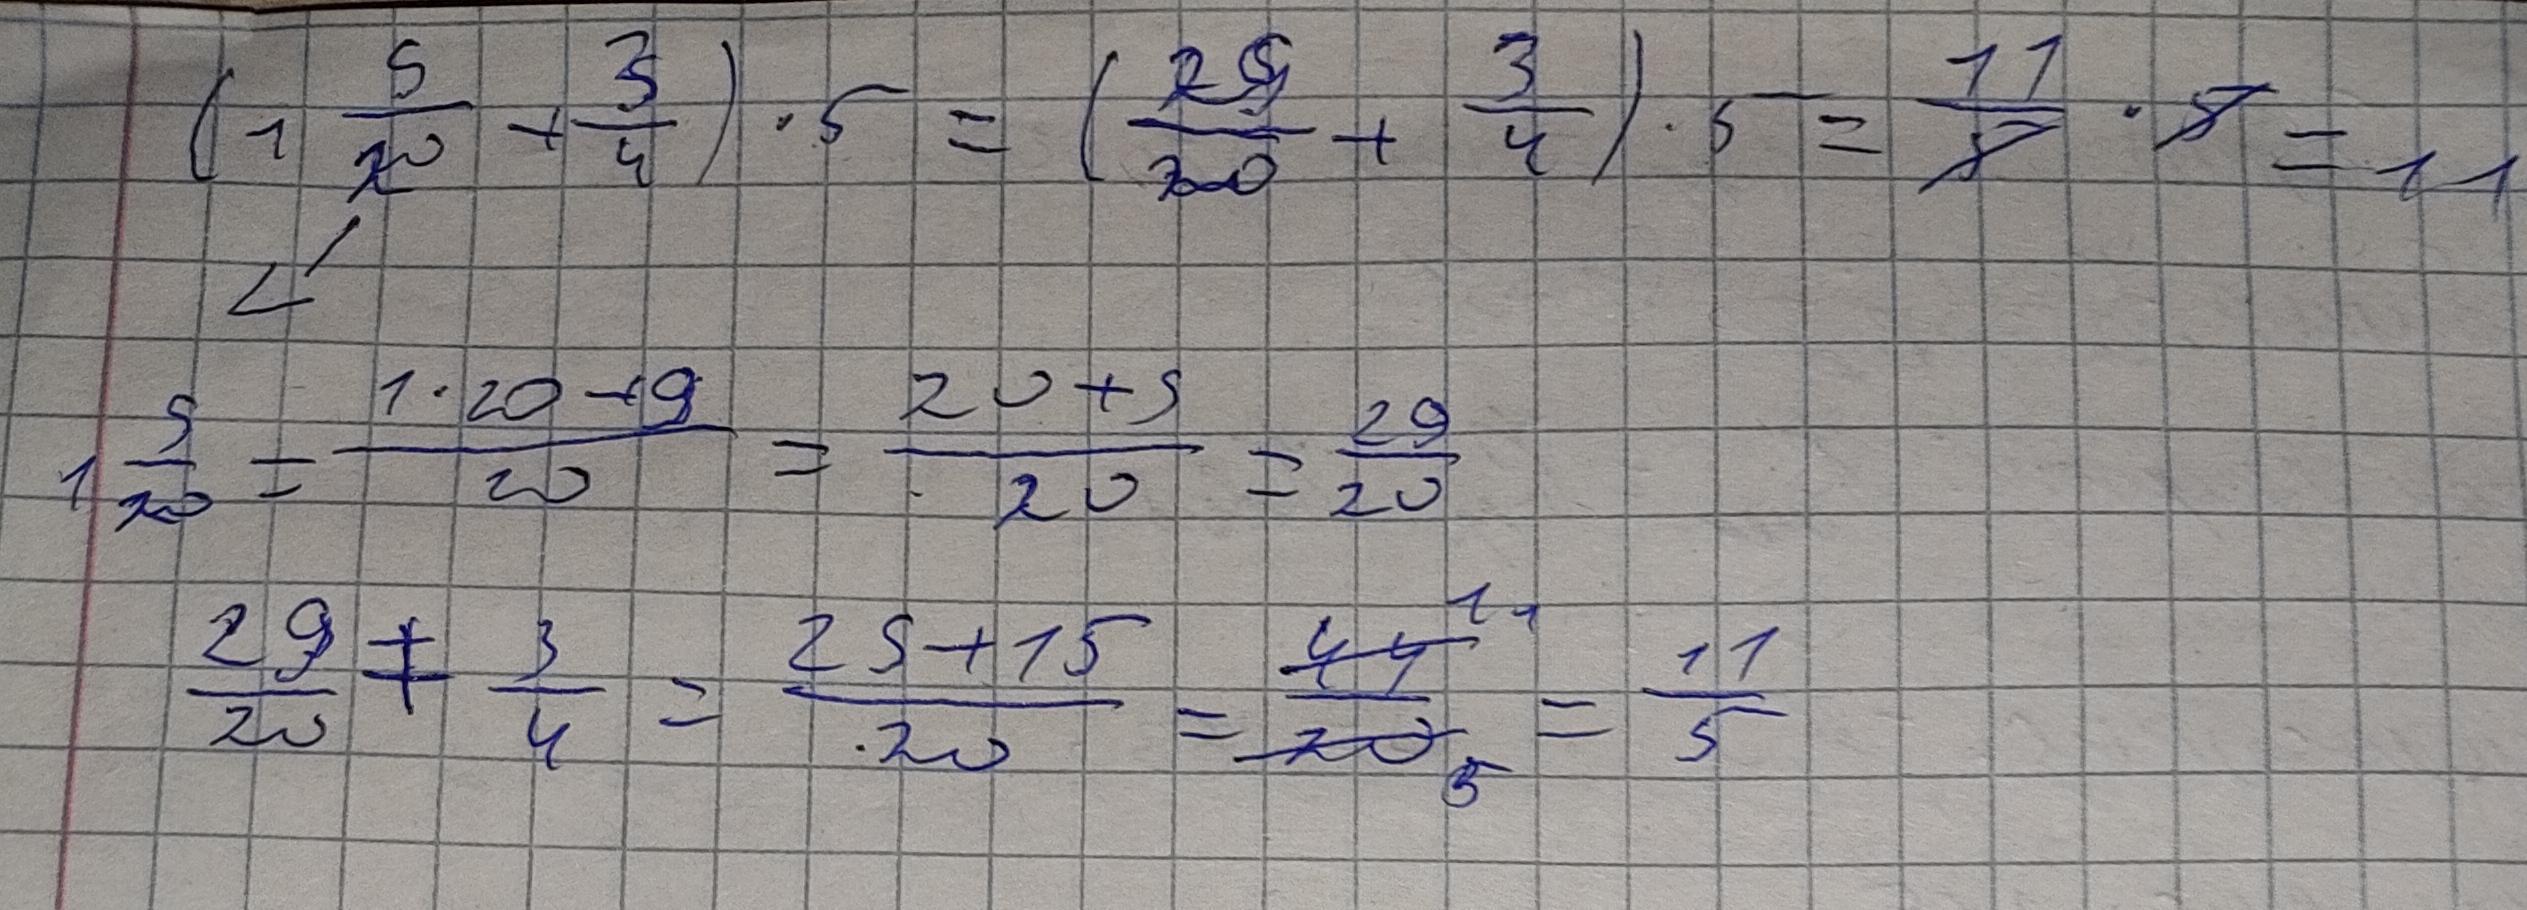 (1 9/20 + 3/4) · 5 = (29/20 + 3/4) · 5 = 11/5 · 5 = 11
1 9/20 = (1·20+9)/20 = (20+9)/20 = 29/20
29/20 + 3/4 = (29+15)/20 = 44/20 11 5 = 11/5